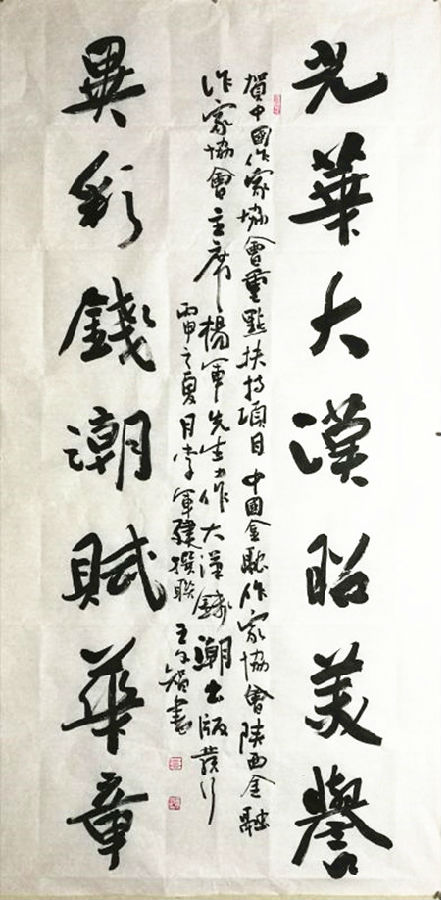 光華大漠昭美譽
賀中國作家協會重點扶持項目中國金融作家協會陝西金融
作家協會主席楊軍先生力作大漠錢潮出版發行
丙申之夏月李軍建撰聯王智書
異彩錢潮賦華章